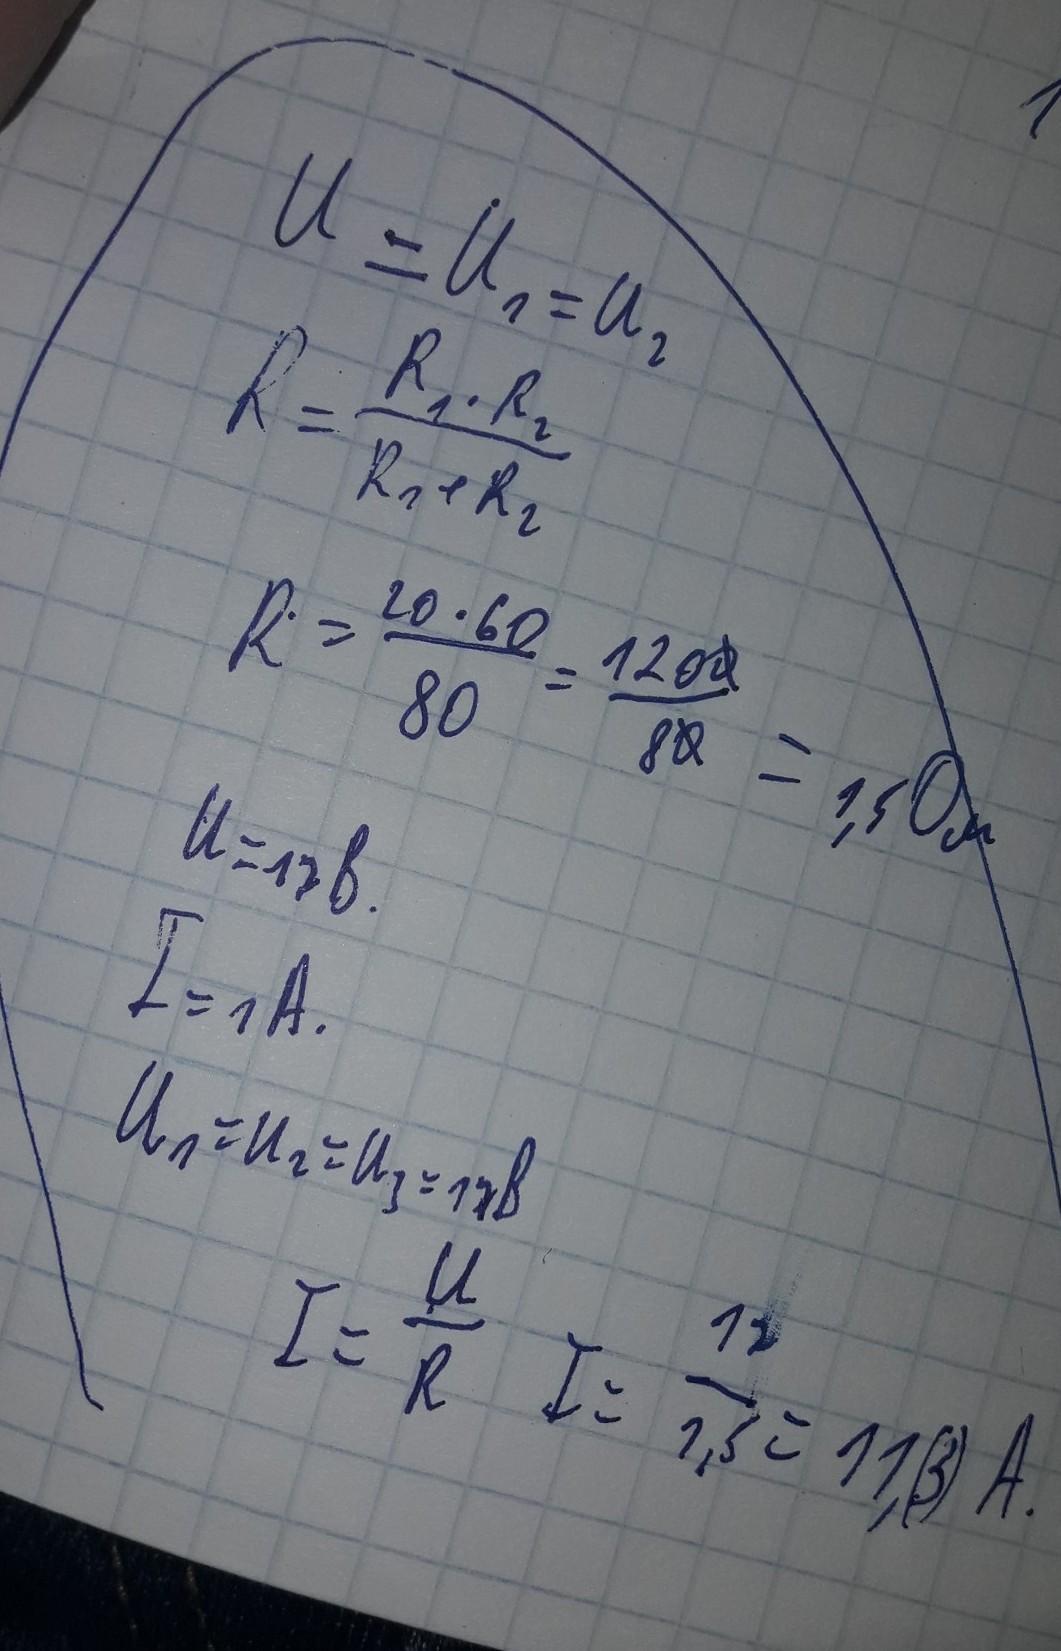 1
U = U₁ = U₂
R = R₁ · R₂ / R₁ + R₂
R = 20 · 60 / 80 = 1200 / 80 = 1,5 Ом
U = 17 В.
I = 1 А.
U₁ = U₂ = U₃ = 17 В
I = U / R I = 17 / 1,5 = 11,(3) А.